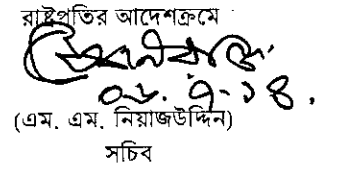 রাষ্ট্রপতির আদেশক্রমে
০৮. ৭-১৪.
(এম. এম. নিয়াজউদ্দিন)
সচিব